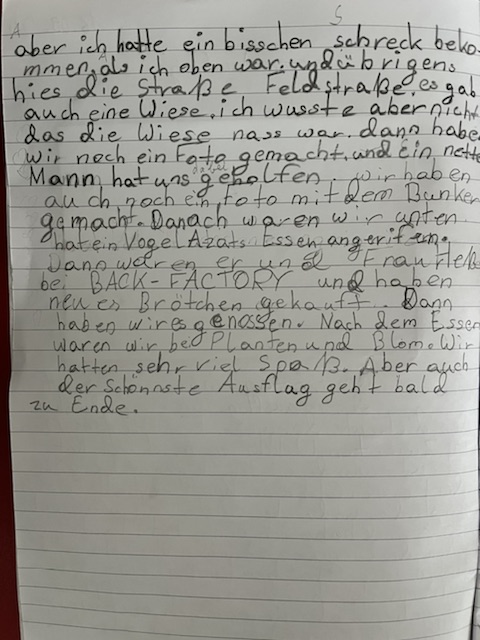 S
aber ich hatte ein bisschen schreck beko-
mmen, als ich oben war. und übrigens
hies die Straße Feldstraße. es gab
auch eine Wiese. ich wusste aber nicht
das die Wiese nass war. dann habe
wir noch ein Foto gemacht. und ein nette
Mann hat uns geholfen. wir haben
auch noch ein foto mit dem Bunker
gemacht. Danach waren wir unten
hat ein Vogel Azats Essen angerifen.
Dann waren er und Frau
bei BACK-FACTORY und haben
neues Brötchen gekauft. Dann
haben wir es genossen. Nach dem Essen
waren wir bei Planten und Blom. Wir
hatten sehr viel Spaß. Aber auch
der schönnste Ausflug geht bald
zu Ende.